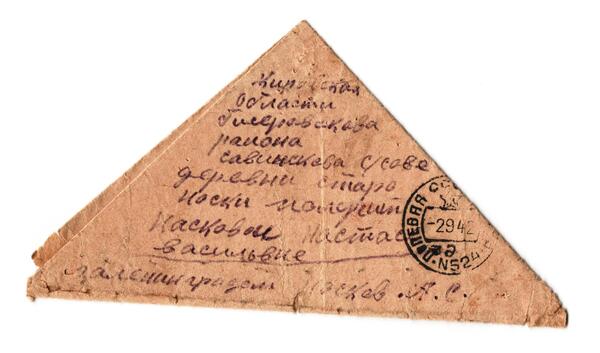 Кировская
области
района
савинскова с/сове
деревни старо
носки получит
Насковои Настас
васильвне
заленинградом Носков А. С.
ПОЛЕВАЯ
-2 9 42
N524